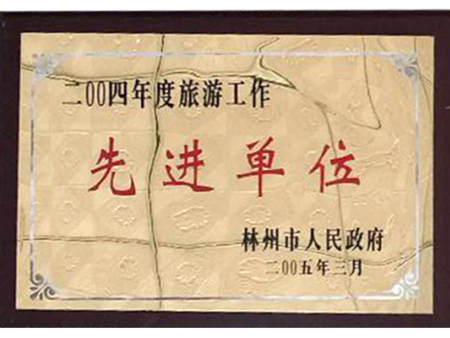 二00四年度旅游工作
先进单位
林州市人民政府
二00五年三月